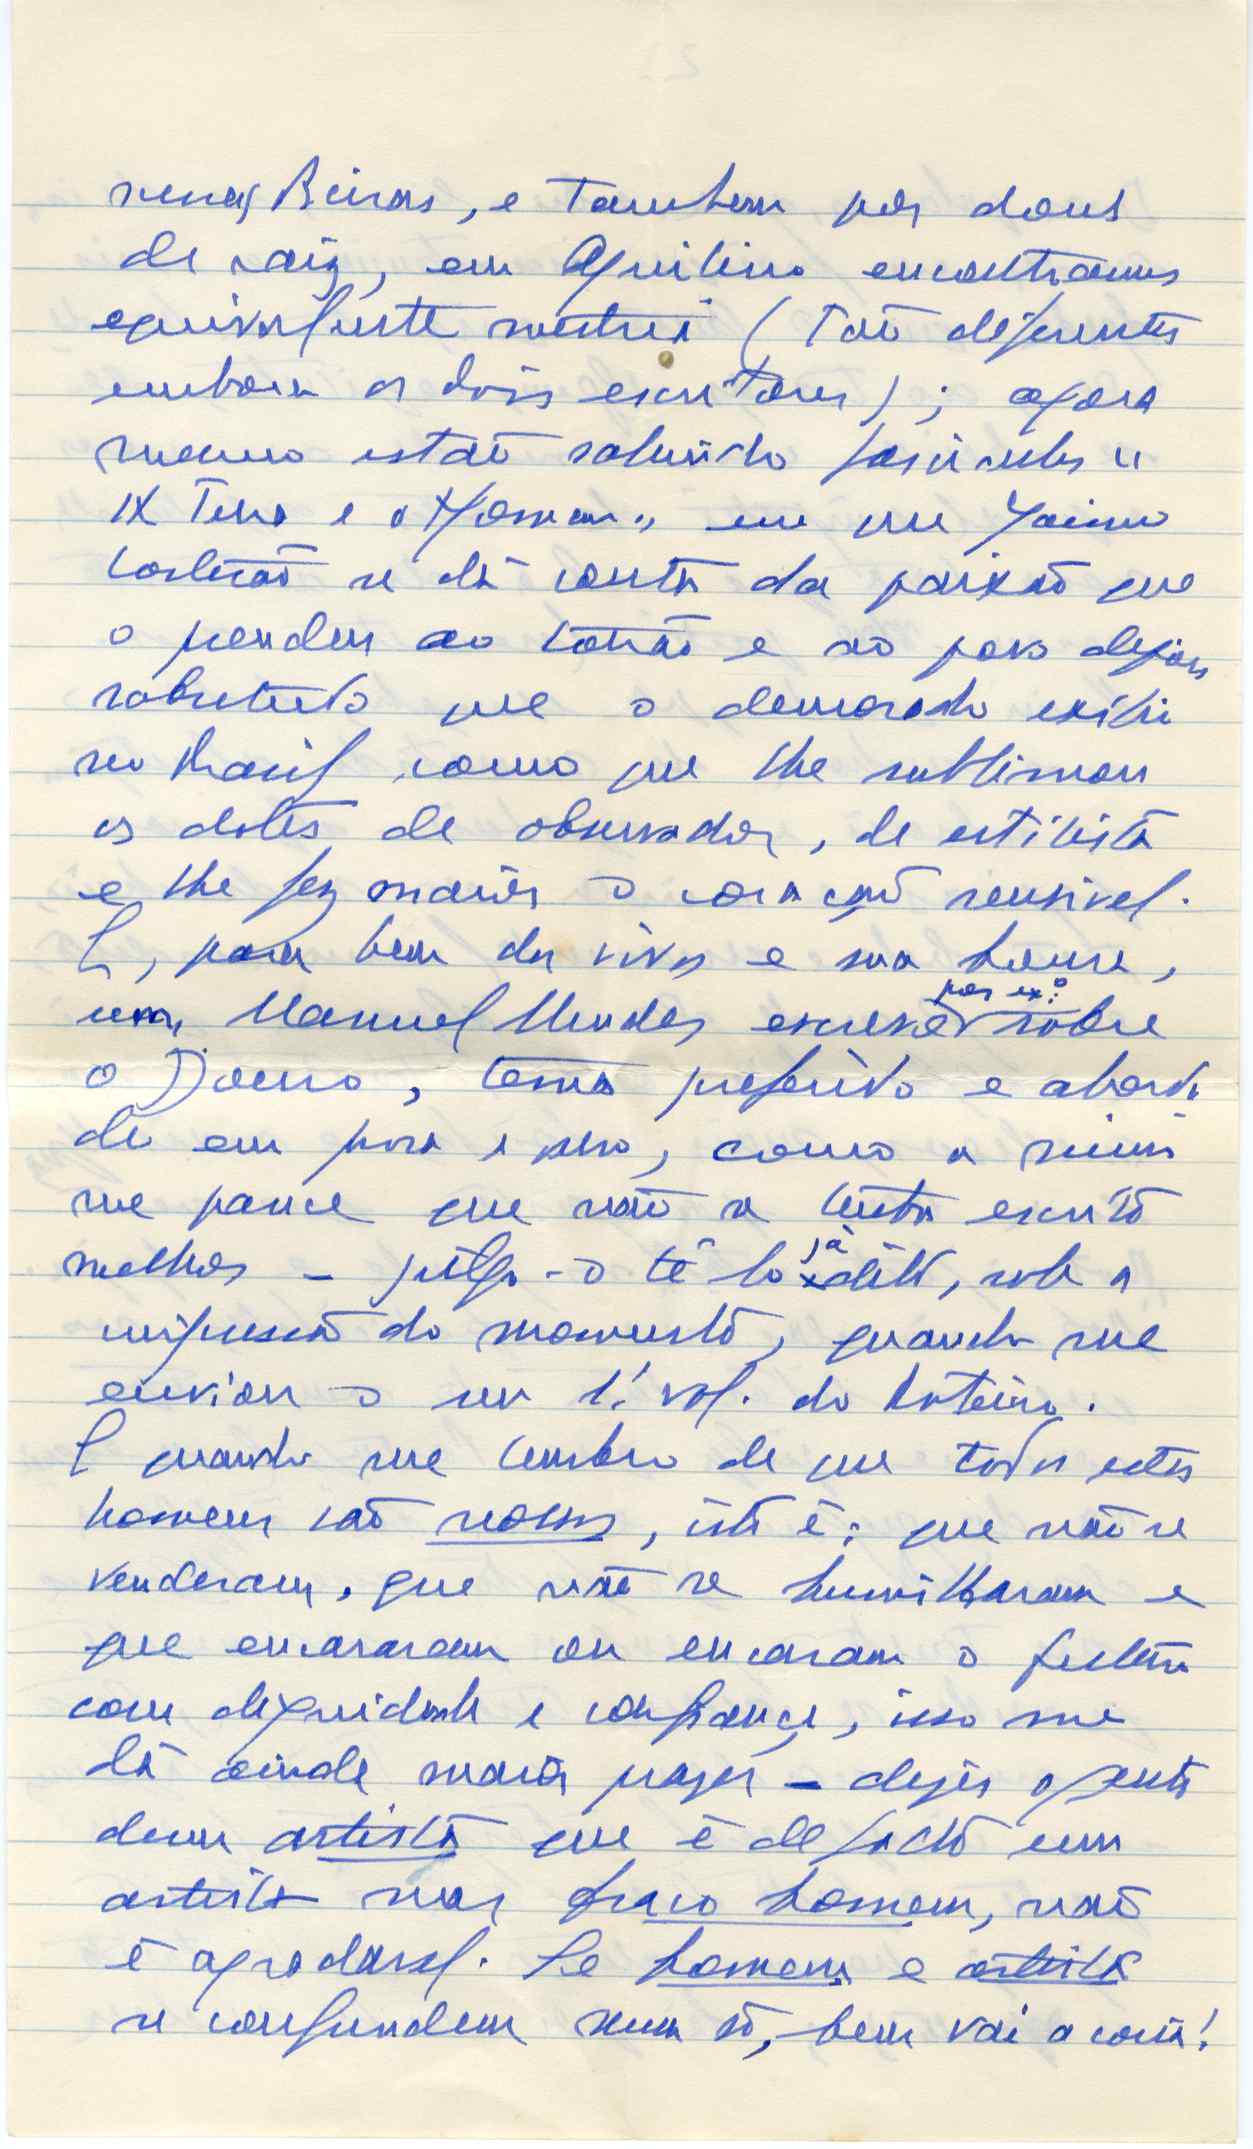 Beiras, e tambem por dons
de raiz, em Aquilino encontramos
equivalente mestria (tão diferentes
embora os dois escritores); agora
mesmo estão saíndo fasciculos "
A Terra e o Homem" em que Jaime
Cortesão se dá conta da paixão que
o prendeu ao torrão e ao povo depois
sobretudo que o demorado exilio
no Brasil como que lhe sublimou
os dotes de observador, de estilista
e lhe fez maior o coração sensivel.
E, para bem dos vivos e sua honra,
um Manuel Mendes escreve por ex.o sobre
o Douro, tema preferido e aborda
do em prosa e verso, como a mim
me parece que não se tenha escrito
melhor – julgo-o tê-lo já dito, sob a
impressão do momento, quando me
enviou o seu 1.º vol. do Roteiro.
E quando me lembro de que todos estes
homens são nossos, isto é: que não se
venderam, que não se humilharam e
que encararam ou encaram o futuro
com dignidade e confiança, isso me
dá ainda maior prazer – dizer a gente
dum artista que é de facto um
artista mas fraco homem, não
é agradavel. Se homem e artista
se confundem num só, bem vai a coisa!